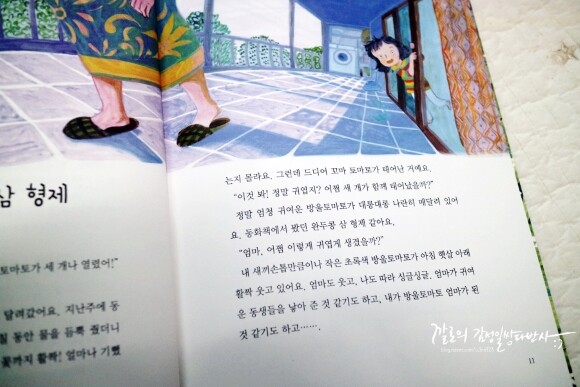 삼 형제
토마토가 세 개나 열렸어!"
달려갔어요. 지난주에 동
칠 동안 물을 듬뿍 줬더니
꽃까지 활짝! 얼마나 기뻤
는지 몰라요. 그런데 드디어 꼬마 토마토가 태어난 거예요.
"이것 봐! 정말 귀엽지? 어쩜 세 개가 함께 태어났을까?"
정말 엄청 귀여운 방울토마토가 대롱대롱 나란히 매달려 있어
요. 동화책에서 봤던 완두콩 삼 형제 같아요.
"엄마, 어쩜 이렇게 귀엽게 생겼을까?"
내 새끼손톱만큼이나 작은 초록색 방울토마토가 아침 햇살 아래
활짝 웃고 있어요. 엄마도 웃고, 나도 따라 싱글싱글. 엄마가 귀여
운 동생들을 낳아 준 것 같기도 하고, 내가 방울토마토 엄마가 된
것 같기도 하고…….
11